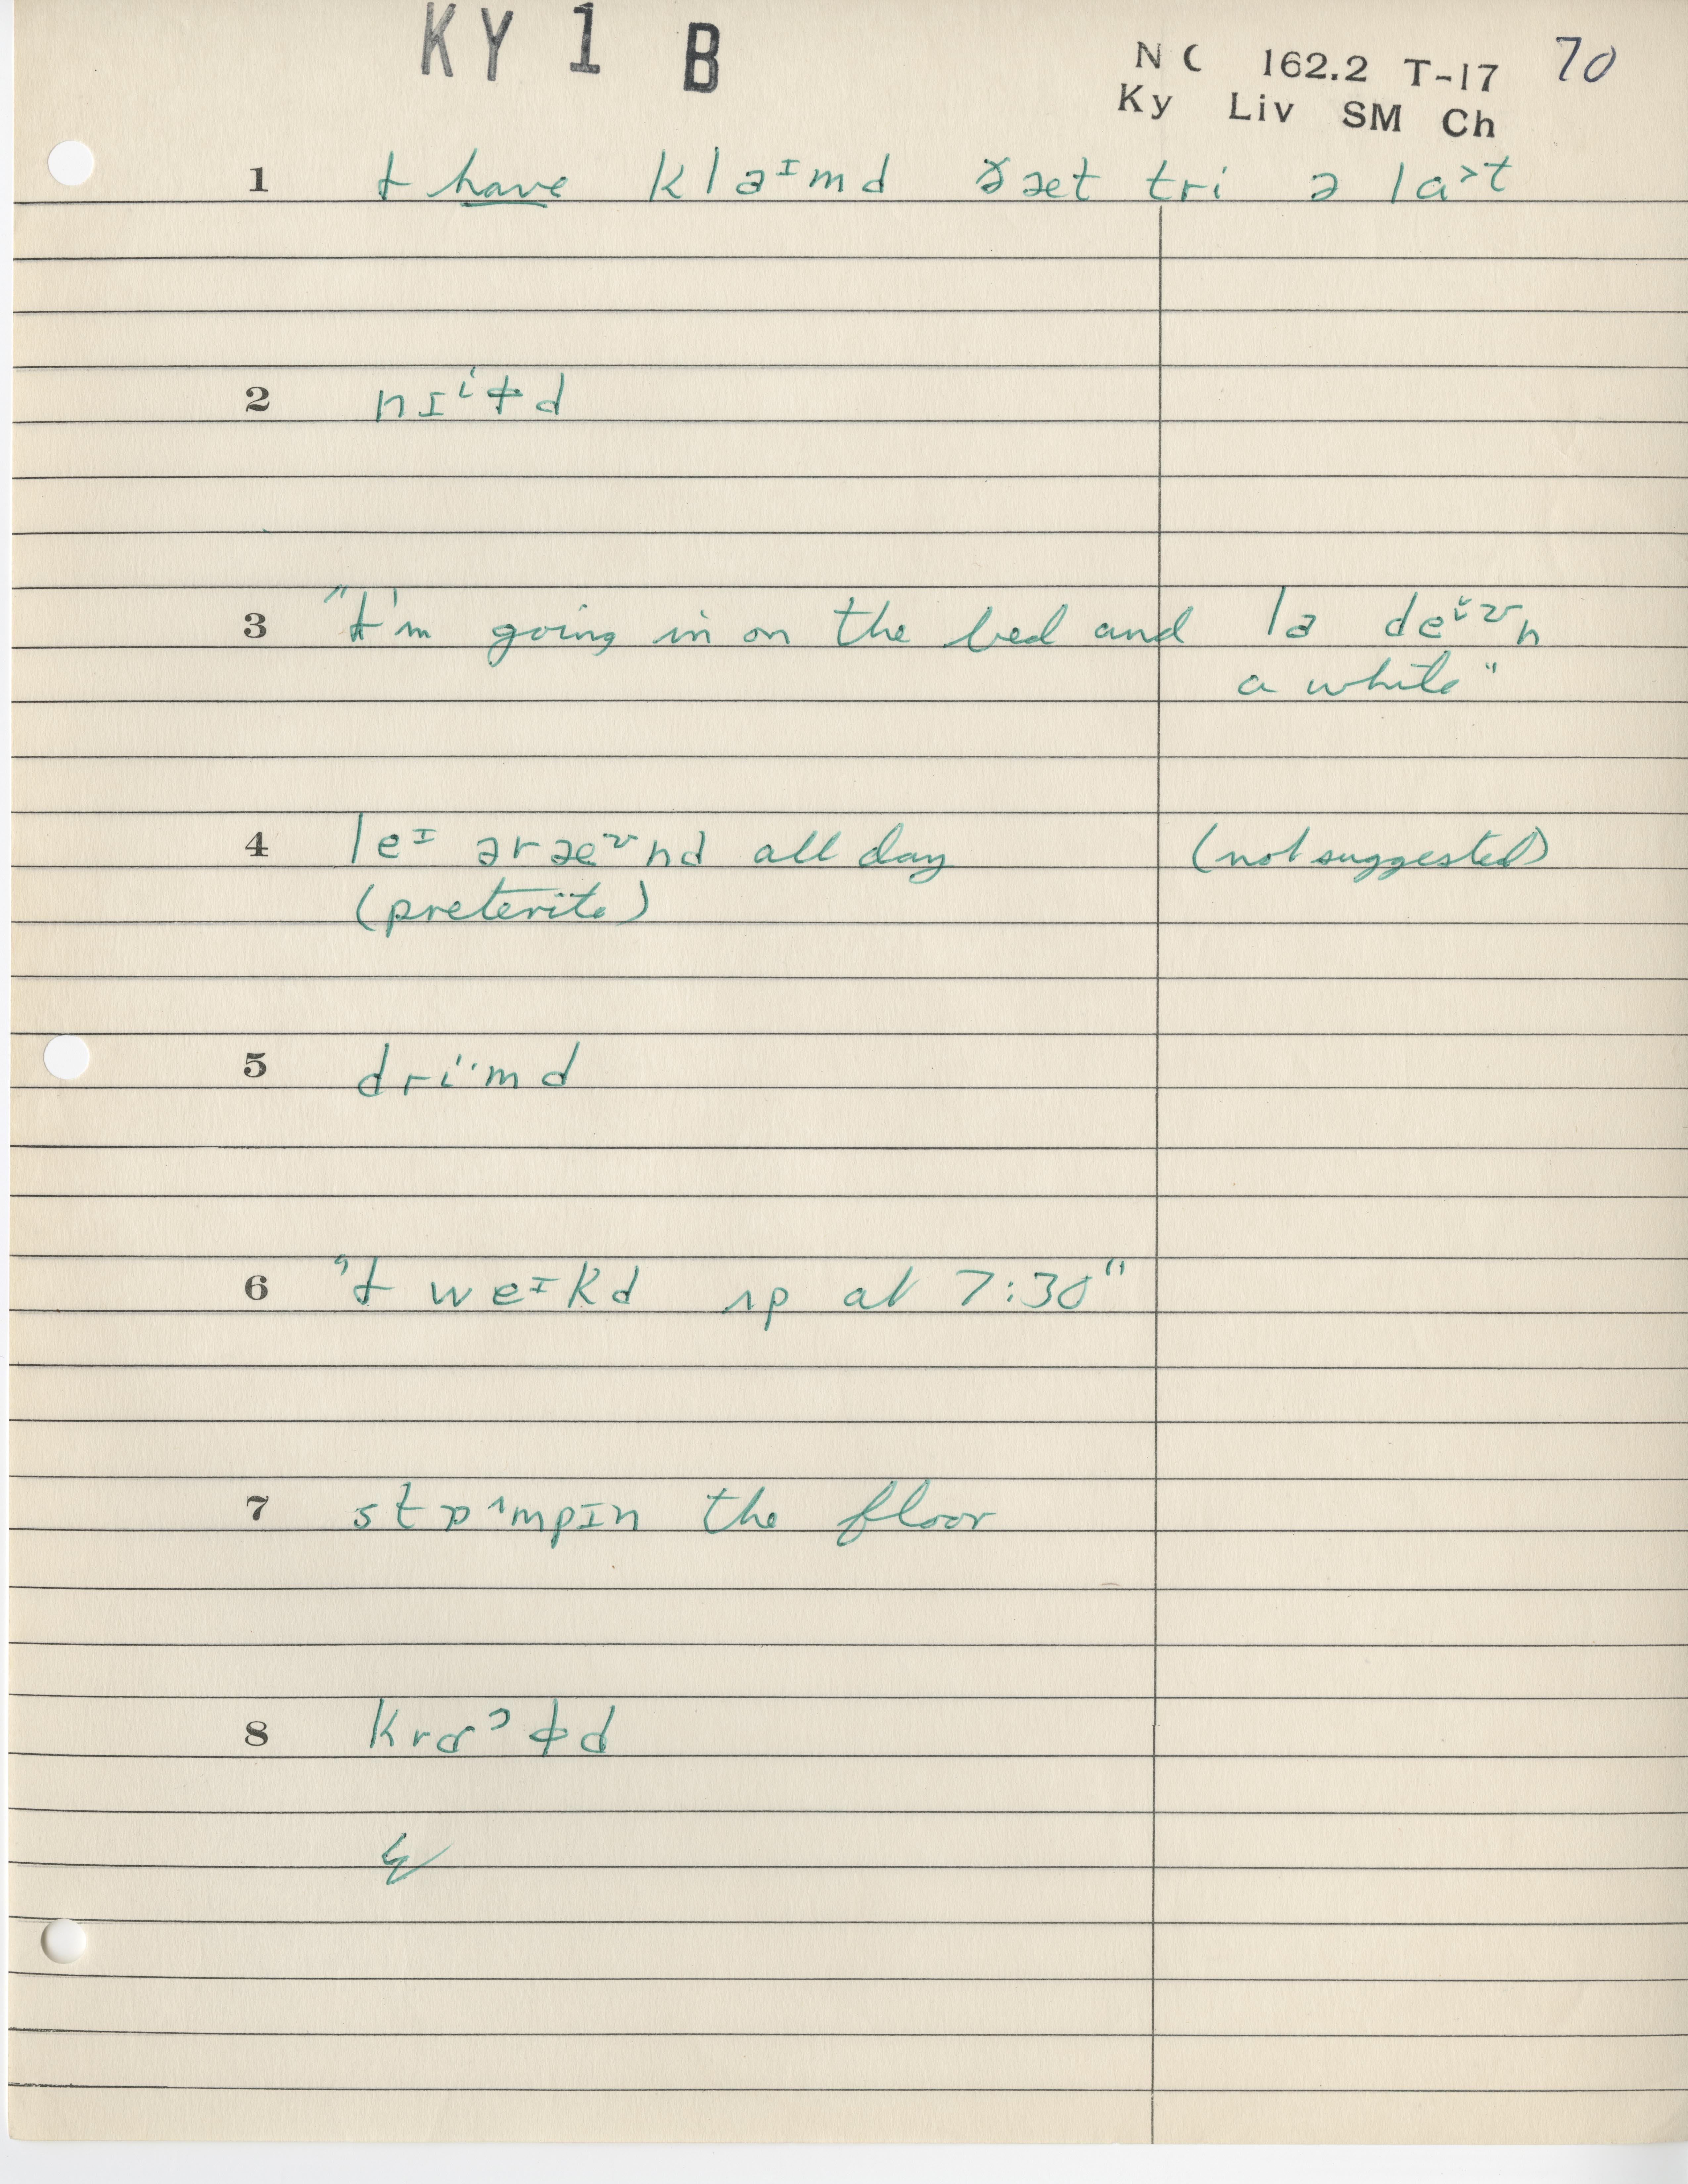 KY 1 B
NC 162.2 T-17 70
Ky Liv SM Ch
1 I have klaᶦmd ðæt tri ə lɑ˃t
2 nɪⁱɫd
3 "I'm going in on the bed and la deⁱᶷn
a while"
4 leᶦ əræᶷnd all day (not suggested)
(preterite)
5 dri·md
6 "I weᶦkd ʌp at 7:30"
7 stɒ˄mpɪn the floor
8